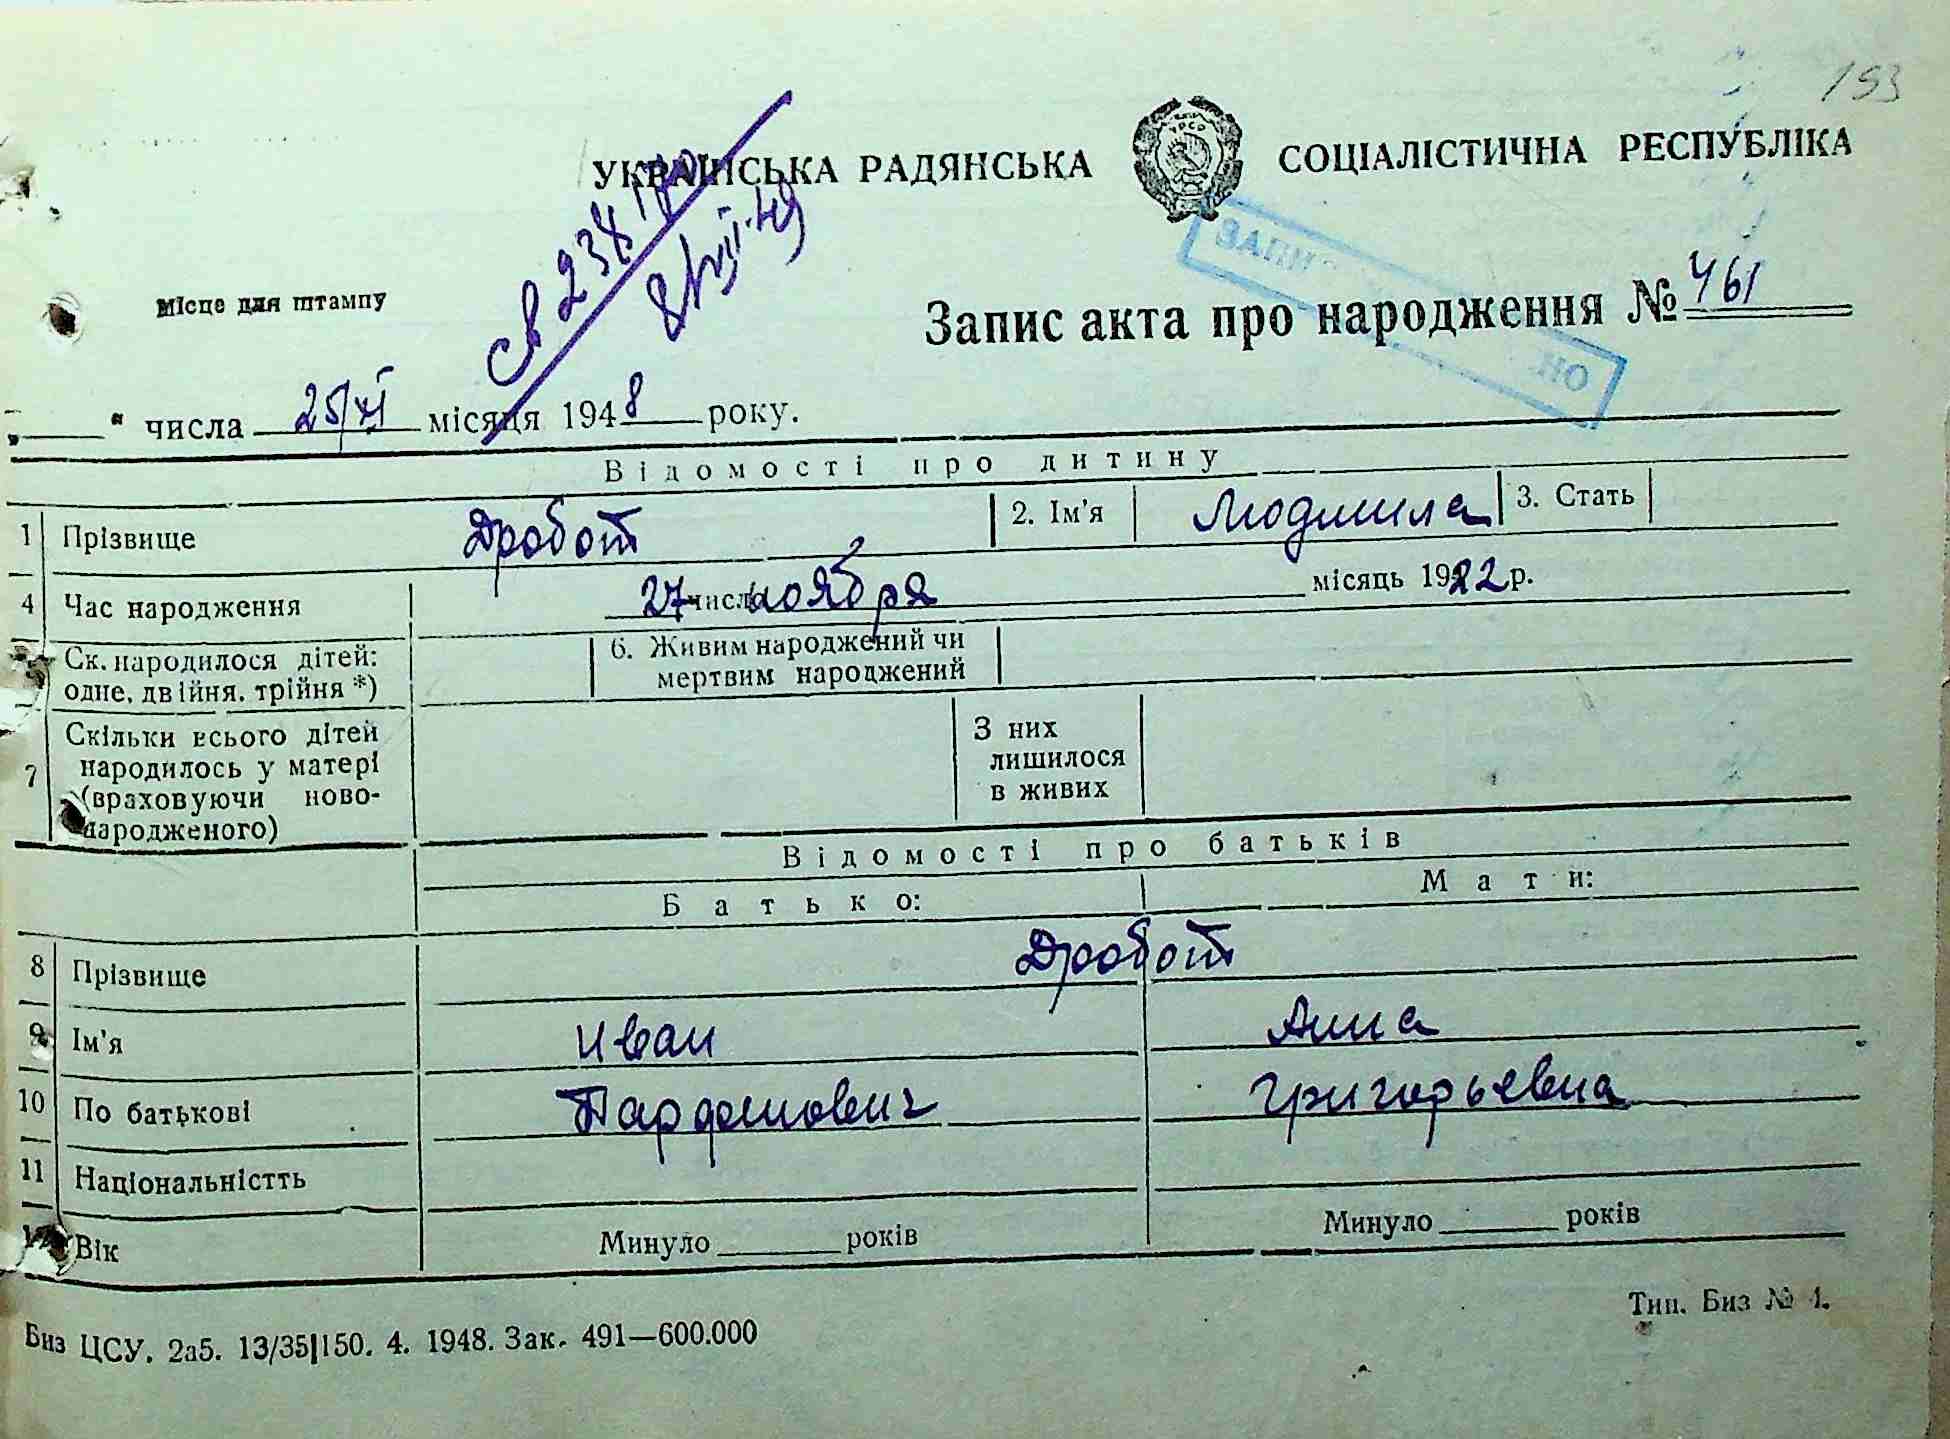 193
УКРАЇНСЬКА РАДЯНСЬКА СОЦІАЛІСТИЧНА РЕСПУБЛІКА
УРСР
Місце для штампу
Запис акта про народження № 461
„ “ числа 25/XI місяця 1948 року.
Відомості про дитину
1 Прізвище Дробот 2. Ім'я Людмила 3. Стать
4 Час народження 27 числа ноября місяць 1922 р.
Ск. народилося дітей: 6. Живим народжений чи
одне, двійня, трійня *) мертвим народжений
Скільки всього дітей З них
народилось у матері лишилося
7 (враховуючи ново- в живих
народженого)
Відомості про батьків
Батько: Мати:
8 Прізвище Дробот
9 Ім'я Иван Анна
10 По батькові Парфенович Григорьевна
11 Національністть
12 Вік Минуло років Минуло років
Биз ЦСУ. 2а5. 13/35|150. 4. 1948. Зак. 491—600.000
Тип. Биз № 1.